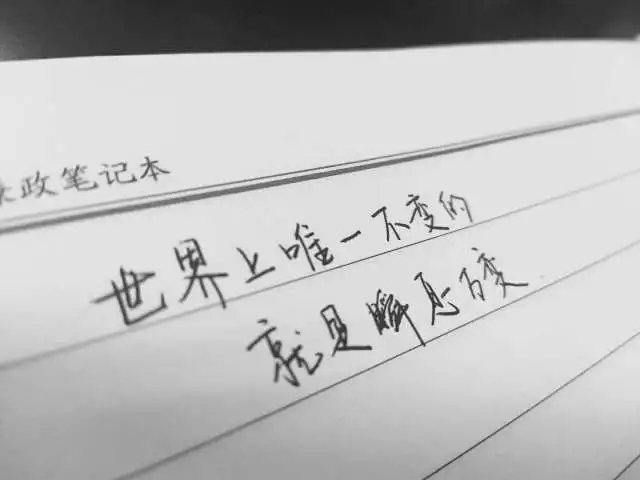 政笔记本
世界上唯一不变的
就是瞬息百变